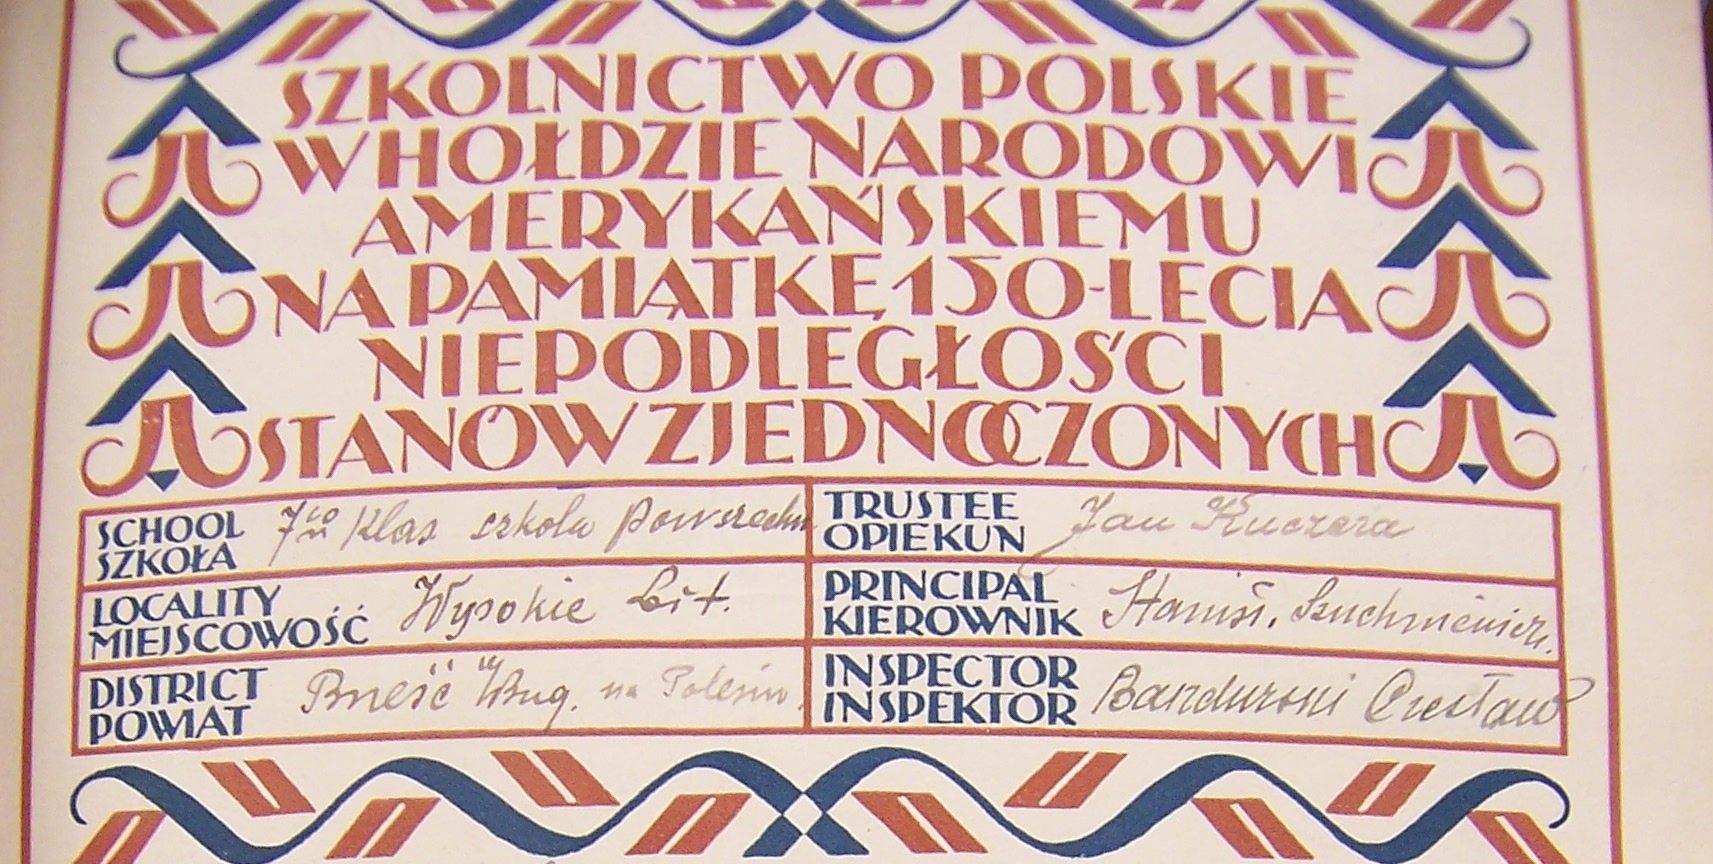 SZKOLNICTWO POLSKIE
W HOŁDZIE NARODOWI
AMERYKAŃSKIEMU
NA PAMIĄTKĘ 150-LECIA
NIEPODLEGŁOŚCI
STANÓW ZJEDNOCZONYCH
SCHOOL 7io klas szkoła powszechn
SZKOŁA
LOCALITY Wysokie Lit.
MIEJSCOWOŚĆ
DISTRICT Brześć n/Bug. na Polesiu.
POWIAT
TRUSTEE Jan Kuczera
OPIEKUN
PRINCIPAL Stanisł.
KIEROWNIK
INSPECTOR Bandurski Czesław
INSPEKTOR